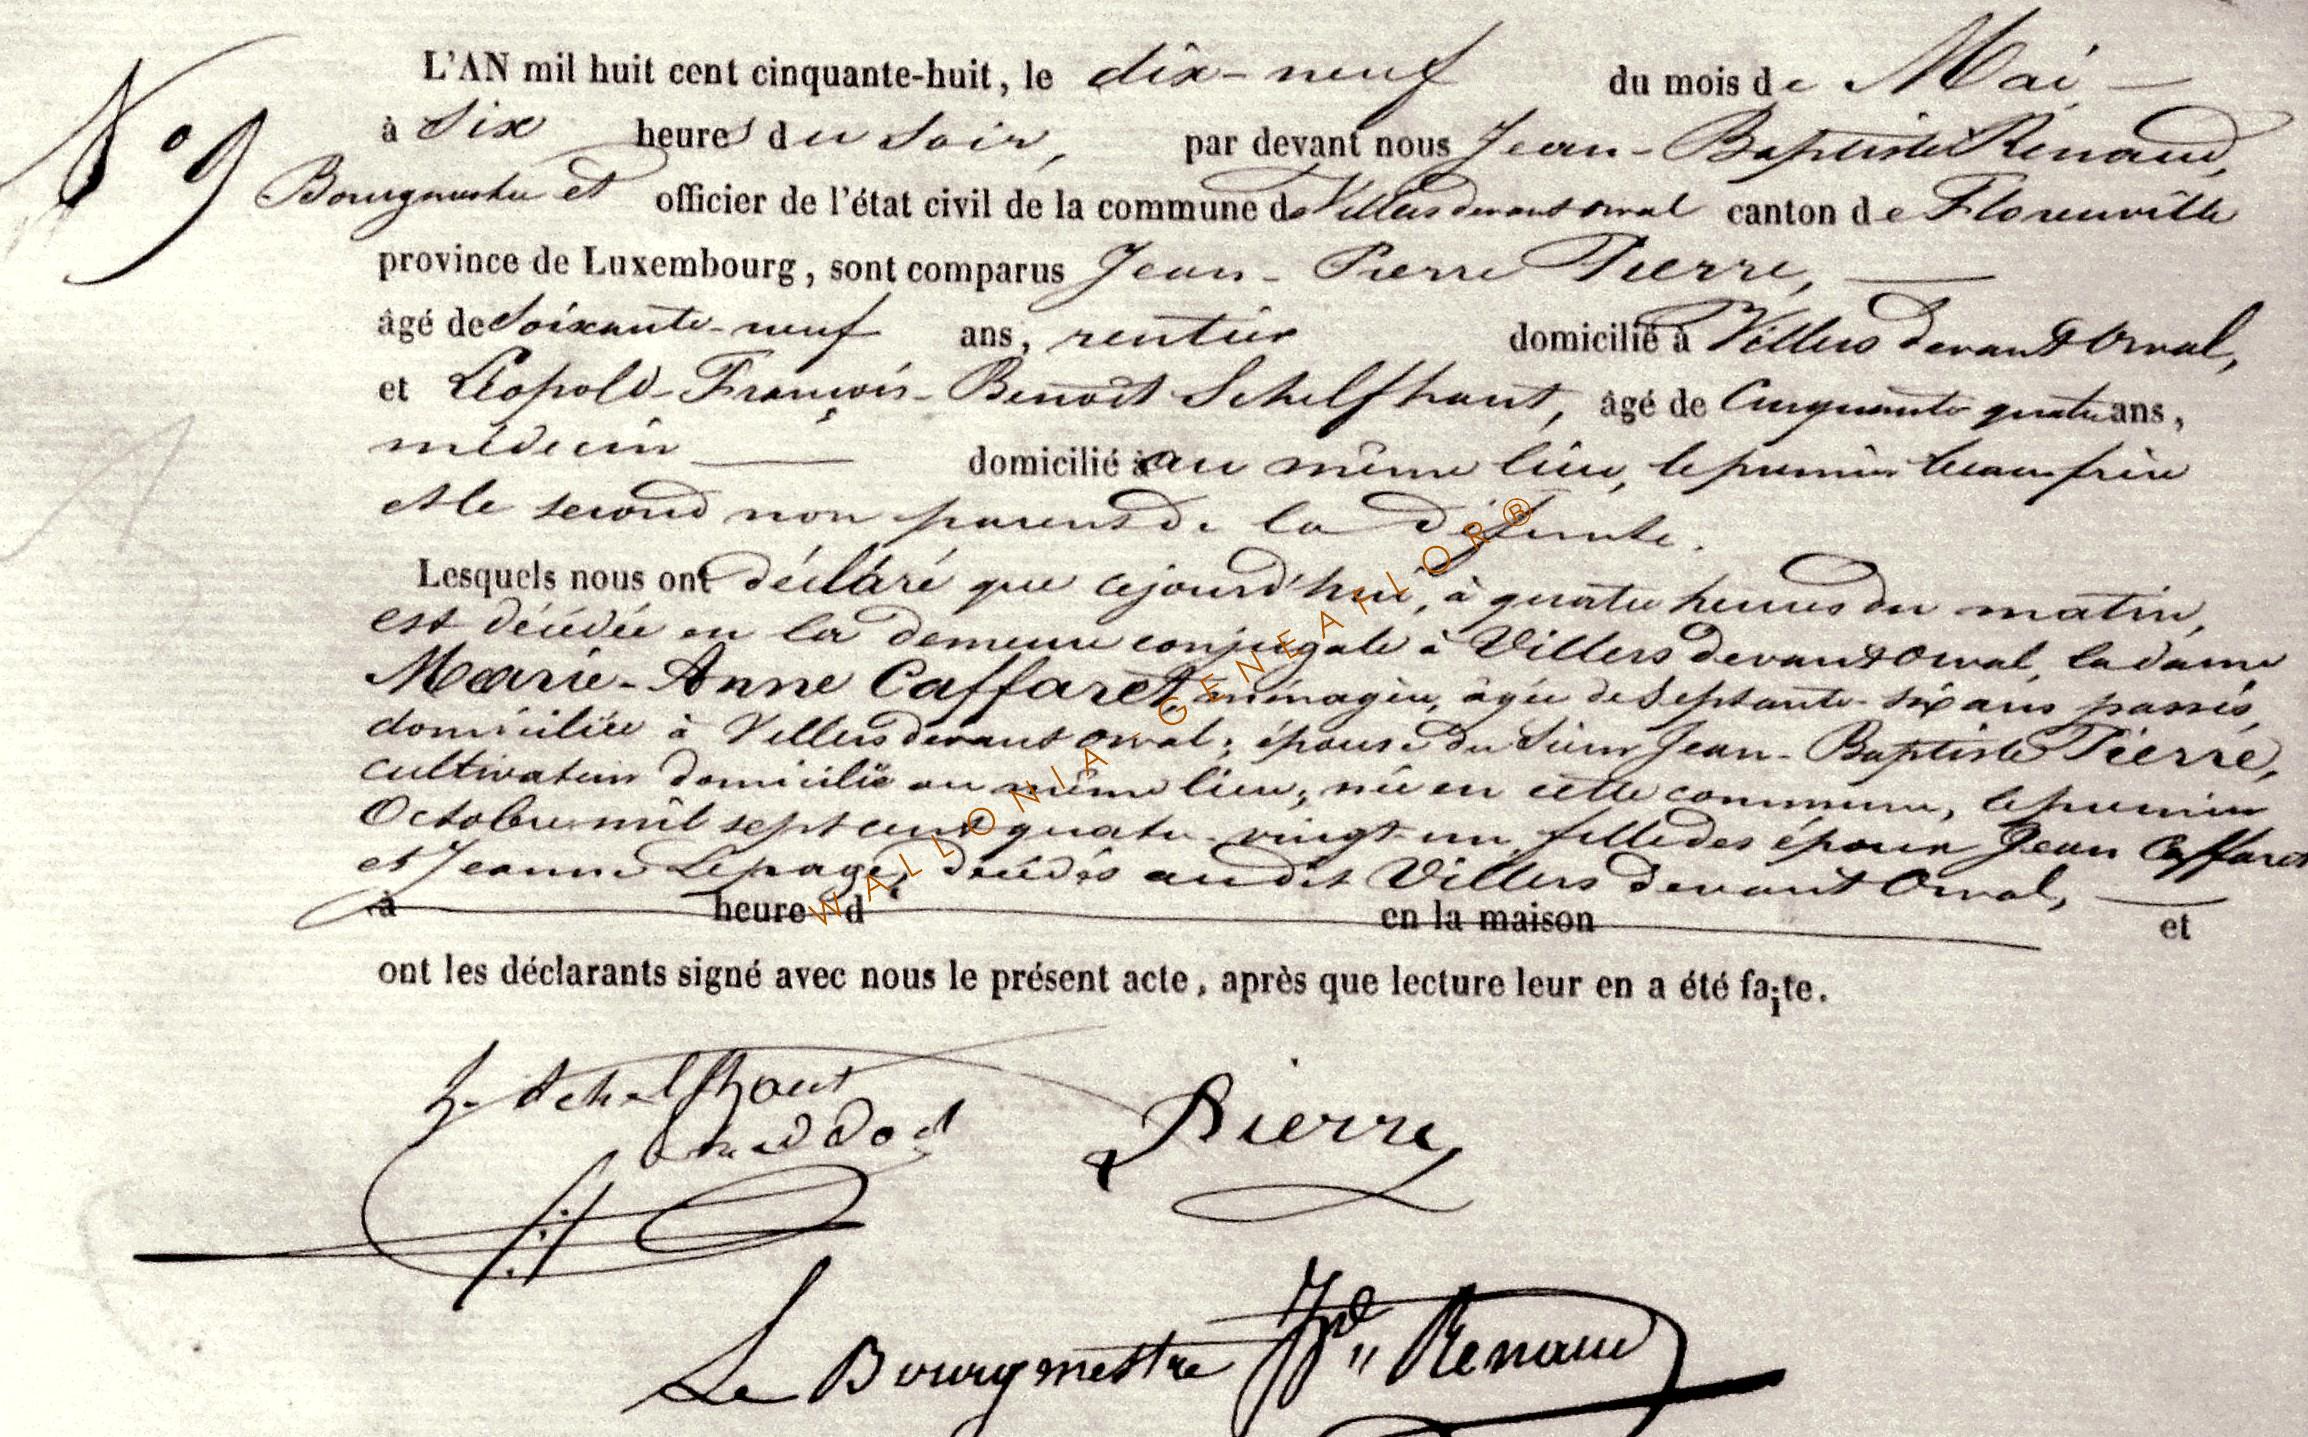 L'AN mil huit cent cinquante-huit, le dix-neuf du mois de Mai
N° 9
à Six heures du Soir, par devant nous Jean-Baptiste Renaud,
Bourgmestre et officier de l'état civil de la commune de Villers devant orval canton de Florenville
province de Luxembourg, sont comparus Jean-Pierre Pierre,
âgé de Soixante-neuf ans, rentier domicilié à Villers devant Orval,
et Léopold-François-Benoit Schelfhaut, âgé de Cinquante quatre ans,
médecin domicilié à au même lieu, le premier beau frère
et le second non parent de la défunte.
Lesquels nous ont déclaré que cejourd'hui, à quatre heures du matin,
est décédée en la demeure conjugale à Villers devant Orval, la dame
Marie-Anne Caffaret, ménagère, âgée de Septante-six ans passés,
domiciliée à Villers devant orval; épouse du Sieur Jean-Baptiste Pierre,
cultivateur domicilié au même lieu; née en cette commune, le premier
Octobre mil sept cent quatre-vingt-un, fille des époux Jean Caffaret
et Jeanne Lepage, décédés audit Villers devant Orval,
à heure d en la maison et
ont les déclarants signé avec nous le présent acte, après que lecture leur en a été faite.
Schelfhaut Pierre
Le Bourgmestre JBte Renaud
WALLONIA GENEAFLOR®